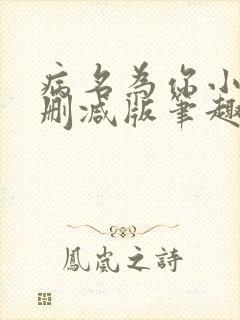 病名为你小
删减版笔趣
鳳嵐之詩